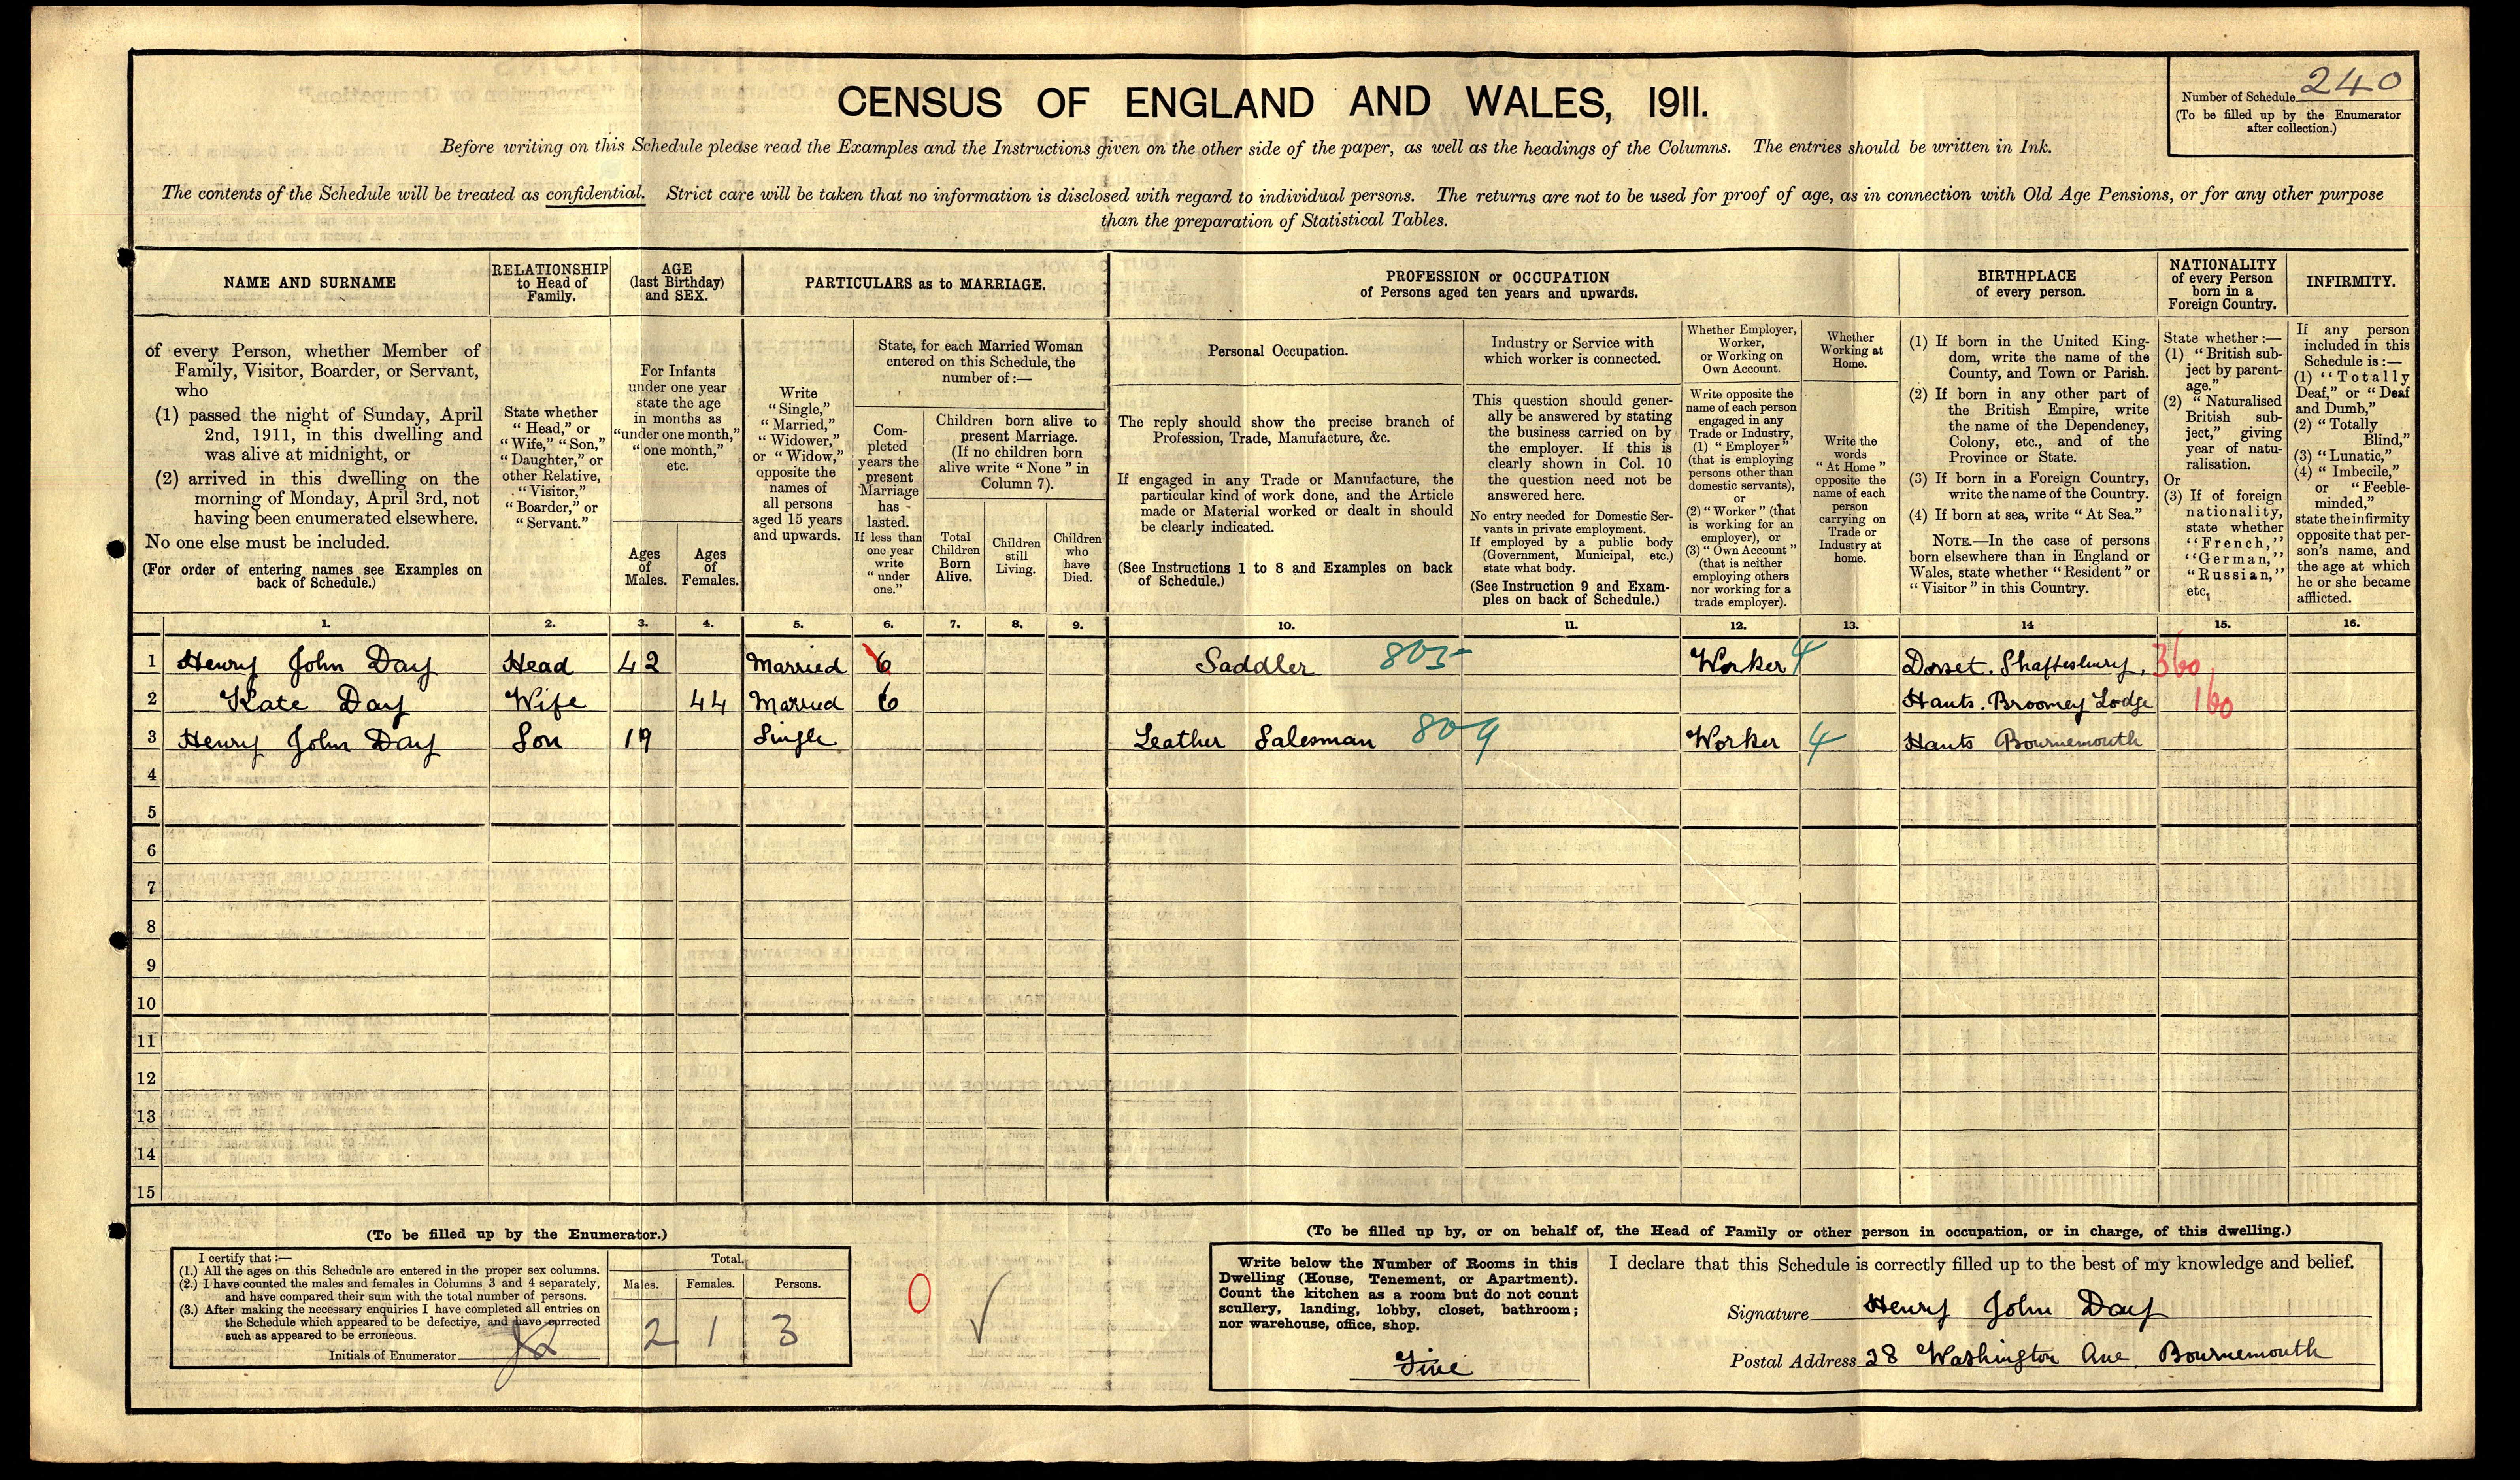 CENSUS OF ENGLAND AND WALES, 1911.
Number of Schedule 240
(To be filled up by the Enumerator
after collection.)
Before writing on this Schedule please read the Examples and the Instructions given on the other side of the paper, as well as the headings of the Columns. The entries should be written in Ink.
The contents of the Schedule will be treated as confidential. Strict care will be taken that no information is disclosed with regard to individual persons. The returns are not to be used for proof of age, as in connection with Old Age Pensions, or for any other purpose
than the preparation of Statistical Tables.
NAME AND SURNAME
of every Person, whether Member of
Family, Visitor, Boarder, or Servant,
who
(1) passed the night of Sunday, April
2nd, 1911, in this dwelling and
was alive at midnight, or
(2) arrived in this dwelling on the
morning of Monday, April 3rd, not
having been enumerated elsewhere.
No one else must be included.
(For order of entering names see Examples on
back of Schedule.)
RELATIONSHIP
to Head of
Family.
State whether
"Head," or
"Wife," "Son,"
"Daughter," or
other Relative,
"Visitor,"
"Boarder," or
"Servant."
AGE
(last Birthday)
and SEX.
For Infants
under one year
state the age
in months as
"under one month,"
"one month,"
etc.
Ages
of
Males.
Ages
of
Females.
PARTICULARS as to MARRIAGE.
Write
"Single,"
"Married,"
"Widower,"
or "Widow,"
opposite the
names of
all persons
aged 15 years
and upwards.
State, for each Married Woman
entered on this Schedule, the
number of:—
Com-
pleted
years the
present
Marriage
has
lasted.
If less than
one year
write
"under
one."
Children born alive to
present Marriage.
(If no children born
alive write "None" in
Column 7).
Total
Children
Born
Alive.
Children
still
Living.
Children
who
have
Died.
PROFESSION or OCCUPATION
of Persons aged ten years and upwards.
Personal Occupation.
The reply should show the precise branch of
Profession, Trade, Manufacture, &c.
If engaged in any Trade or Manufacture, the
particular kind of work done, and the Article
made or Material worked or dealt in should
be clearly indicated.
(See Instructions 1 to 8 and Examples on back
of Schedule.)
Industry or Service with
which worker is connected.
This question should gener-
ally be answered by stating
the business carried on by
the employer. If this is
clearly shown in Col. 10
the question need not be
answered here.
No entry needed for Domestic Ser-
vants in private employment.
If employed by a public body
(Government, Municipal, etc.)
state what body.
(See Instruction 9 and Exam-
ples on back of Schedule.)
Whether Employer,
Worker,
or Working on
Own Account.
Write opposite the
name of each person
engaged in any
Trade or Industry,
(1) "Employer"
(that is employing
persons other than
domestic servants),
or
(2) "Worker" (that
is working for an
employer), or
(3) "Own Account"
(that is neither
employing others
nor working for a
trade employer).
Whether
Working at
Home.
Write the
words
"At Home"
opposite the
name of each
person
carrying on
Trade or
Industry at
home.
BIRTHPLACE
of every person.
(1) If born in the United King-
dom, write the name of the
County, and Town or Parish.
(2) If born in any other part of
the British Empire, write
the name of the Dependency,
Colony, etc., and of the
Province or State.
(3) If born in a Foreign Country,
write the name of the Country.
(4) If born at sea, write "At Sea."
NOTE.—In the case of persons
born elsewhere than in England or
Wales, state whether "Resident" or
"Visitor" in this Country.
NATIONALITY
of every Person
born in a
Foreign Country.
State whether:—
(1) "British sub-
ject by parent-
age."
(2) "Naturalised
British sub-
ject," giving
year of natu-
ralisation.
Or
(3) If of foreign
nationality,
state whether
"French,"
"German,"
"Russian,"
etc.
INFIRMITY.
If any person
included in this
Schedule is:—
(1) "Totally
Deaf," or "Deaf
and Dumb,"
(2) "Totally
Blind,"
(3) "Lunatic,"
(4) "Imbecile,"
or "Feeble-
minded,"
state the infirmity
opposite that per-
son's name, and
the age at which
he or she became
afflicted.
1. 2. 3. 4. 5. 6. 7. 8. 9. 10. 11. 12. 13. 14 15. 16.
1 Henry John Day Head 42 Married 6 Saddler 805 Worker 4 Dorset. Shaftesbury. 360
2 Kate Day Wife 44 Married 6 Hants. Broomey Lodge 160
3 Henry John Day Son 19 Single Leather Salesman 809 Worker 4 Hants Bournemouth
4
5
6
7
8
9
10
11
12
13
14
15
(To be filled up by the Enumerator.)
I certify that:—
(1.) All the ages on this Schedule are entered in the proper sex columns.
(2.) I have counted the males and females in Columns 3 and 4 separately,
and have compared their sum with the total number of persons.
(3.) After making the necessary enquiries I have completed all entries on
the Schedule which appeared to be defective, and have corrected
such as appeared to be erroneous.
Initials of Enumerator
Total.
Males. Females. Persons.
2 1 3
0 ✓
(To be filled up by, or on behalf of, the Head of Family or other person in occupation, or in charge, of this dwelling.)
Write below the Number of Rooms in this
Dwelling (House, Tenement, or Apartment).
Count the kitchen as a room but do not count
scullery, landing, lobby, closet, bathroom;
nor warehouse, office, shop.
Five
I declare that this Schedule is correctly filled up to the best of my knowledge and belief.
Signature Henry John Day
Postal Address 28 Washington Ave. Bournemouth